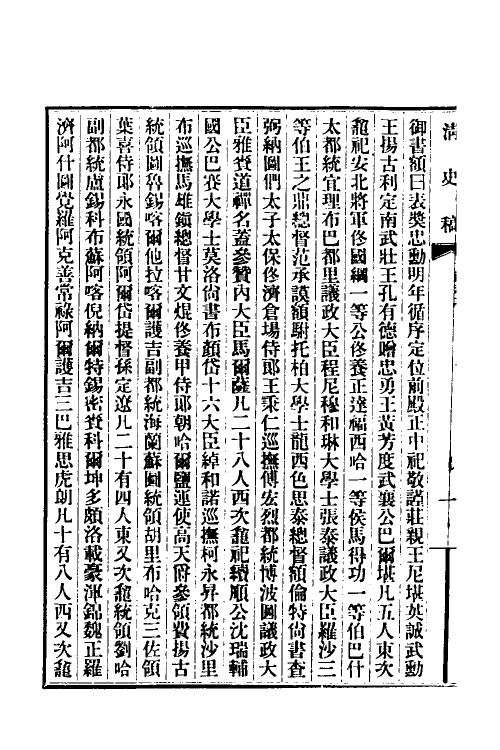 清史稿
御書額曰表獎忠勳明年循序定位前殿正中祀敬謹莊親王尼堪英誠武勳
王揚古利定南武壯王孔有德贈忠勇王黃芳度武襄公巴爾堪凡五人東次
龕祀安北將軍佟國綱一等公佟養正達福西哈一等侯馬得功一等伯巴什
太都統宜理布巴都里議政大臣程尼穆和琳大學士張泰議政大臣羅沙三
等伯王之鼎總督范承謨額駙托柏大學士龍西色思泰總督額倫特尙書查
弼納圖們太子太保佟濟倉場侍郎王秉仁巡撫傅安烈都統博波圖議政大
臣雅賚道禪名蓋參贊內大臣馬爾薩凡二十八人西次龕祀續順公沈瑞輔
國公巴賽大學士莫洛尙書布顏岱十六大臣綽和諾巡撫柯永昇都統沙里
布巡撫馬雄鎭總督甘文焜佟養甲侍郎朝哈爾鹽運使高天爵參領費揚古
統領圖魯錫喀爾他拉喀爾護吉副都統海蘭蘇圖統領胡里布哈克三佐領
葉喜侍郎永國統領阿爾岱提督孫定遼凡二十有四人東又次龕統領劉哈
副都統盧錫科布蘇阿喀倪納爾特錫密賚科爾坤多頗洛載豪渾錦魏正羅
濟阿什圖覺羅阿克善常祿阿爾護吉三巴雅思虎朗凡十有八人西又次龕